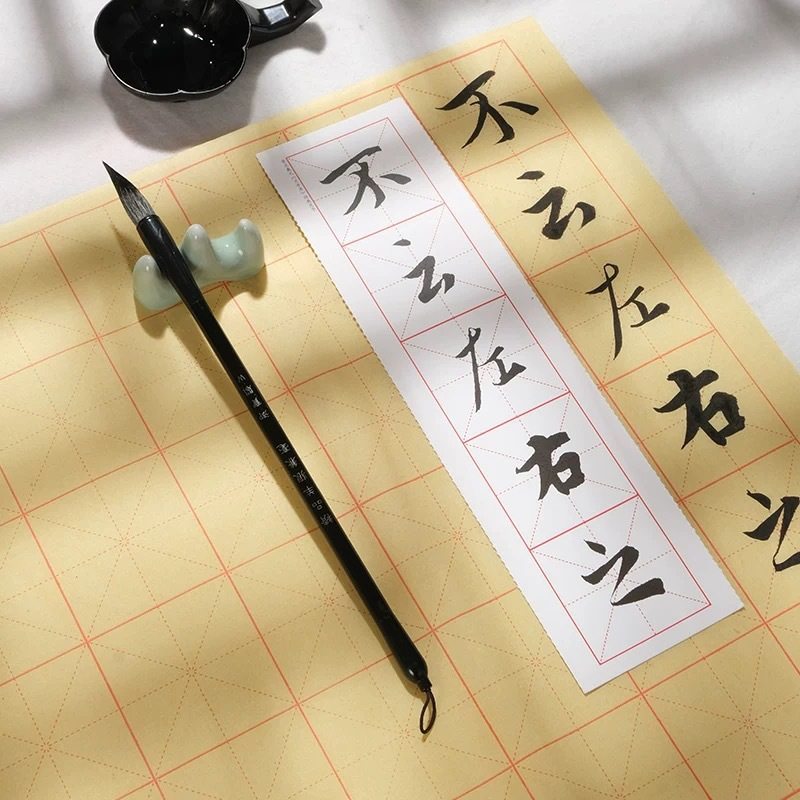 不云左右之
不云左右之